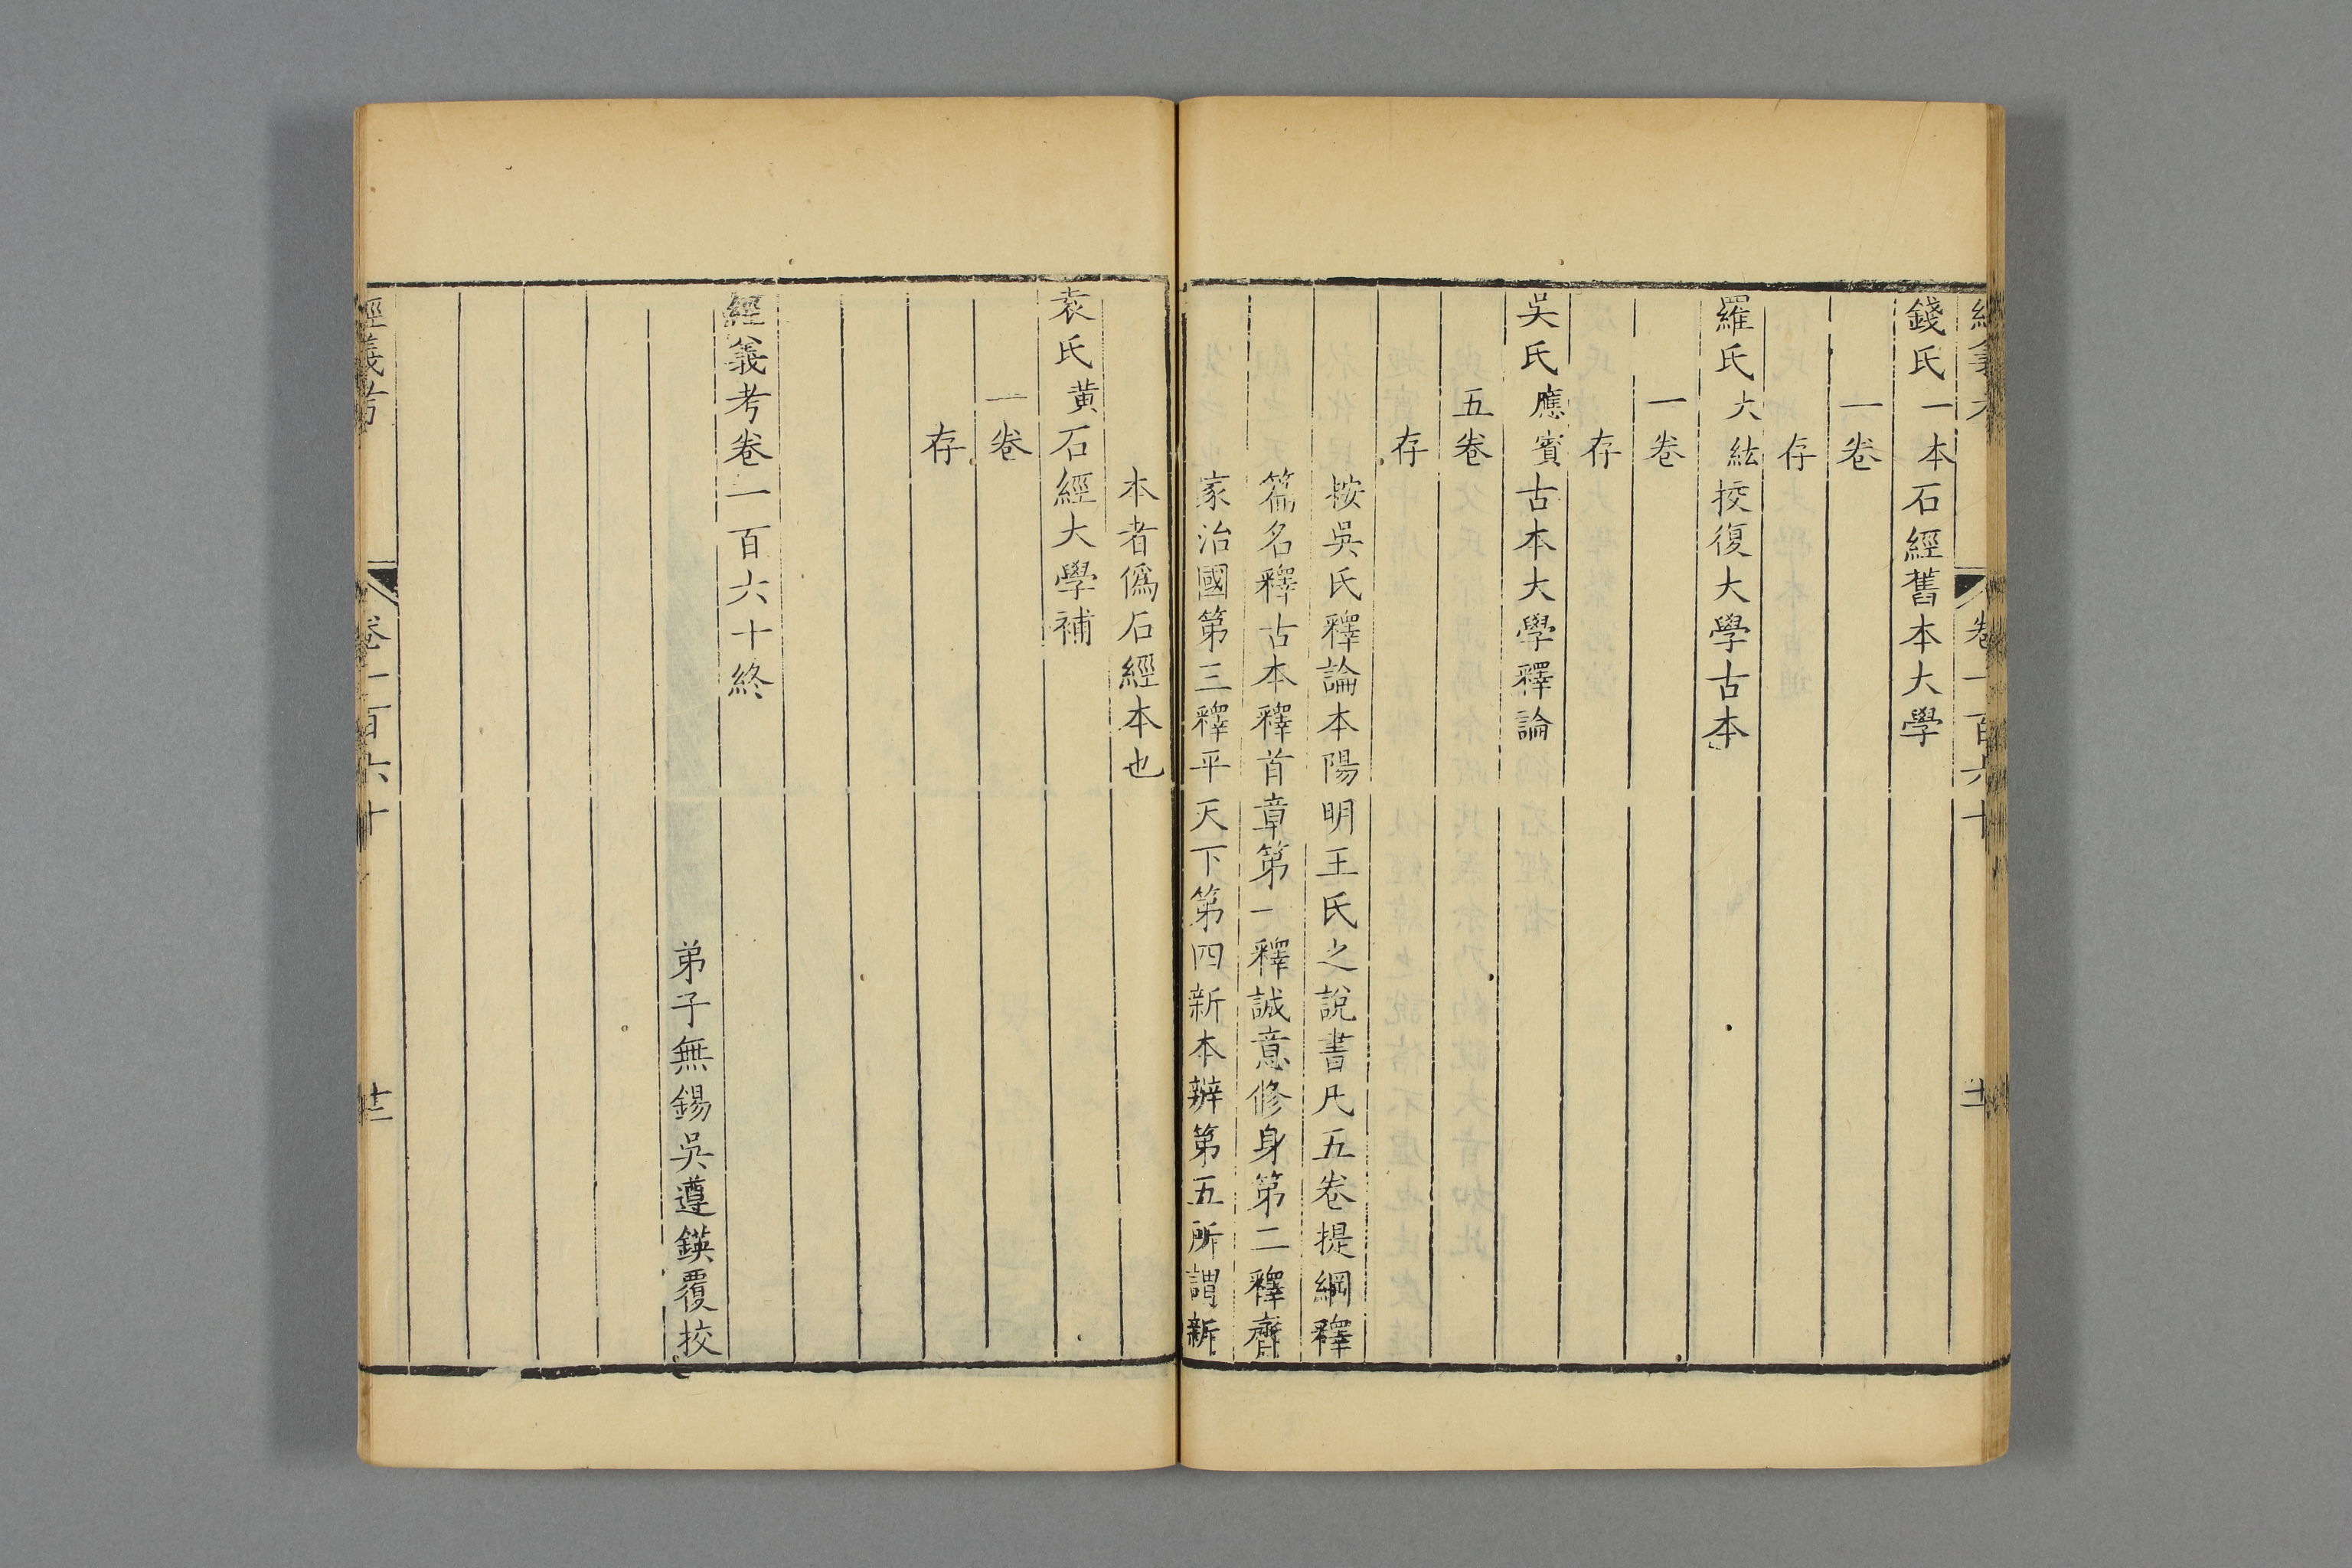 經義考 卷一百六十 十二
錢氏一本石經舊本大學
一卷
存
羅氏大紘挍復大學古本
一卷
存
吳氏應賓古本大學釋論
五卷
存
按吳氏釋論本陽明王氏之說書凡五卷提綱釋
篇名釋古本釋首章第一釋誠意修身第二釋齊
家治國第三釋平天下第四新本辨第五所謂新
本者僞石經本也
袁氏黄石經大學補
一卷
存
經義考卷一百六十終
弟子無錫吳遵鍈覆挍
經義考 卷一百六十 十三